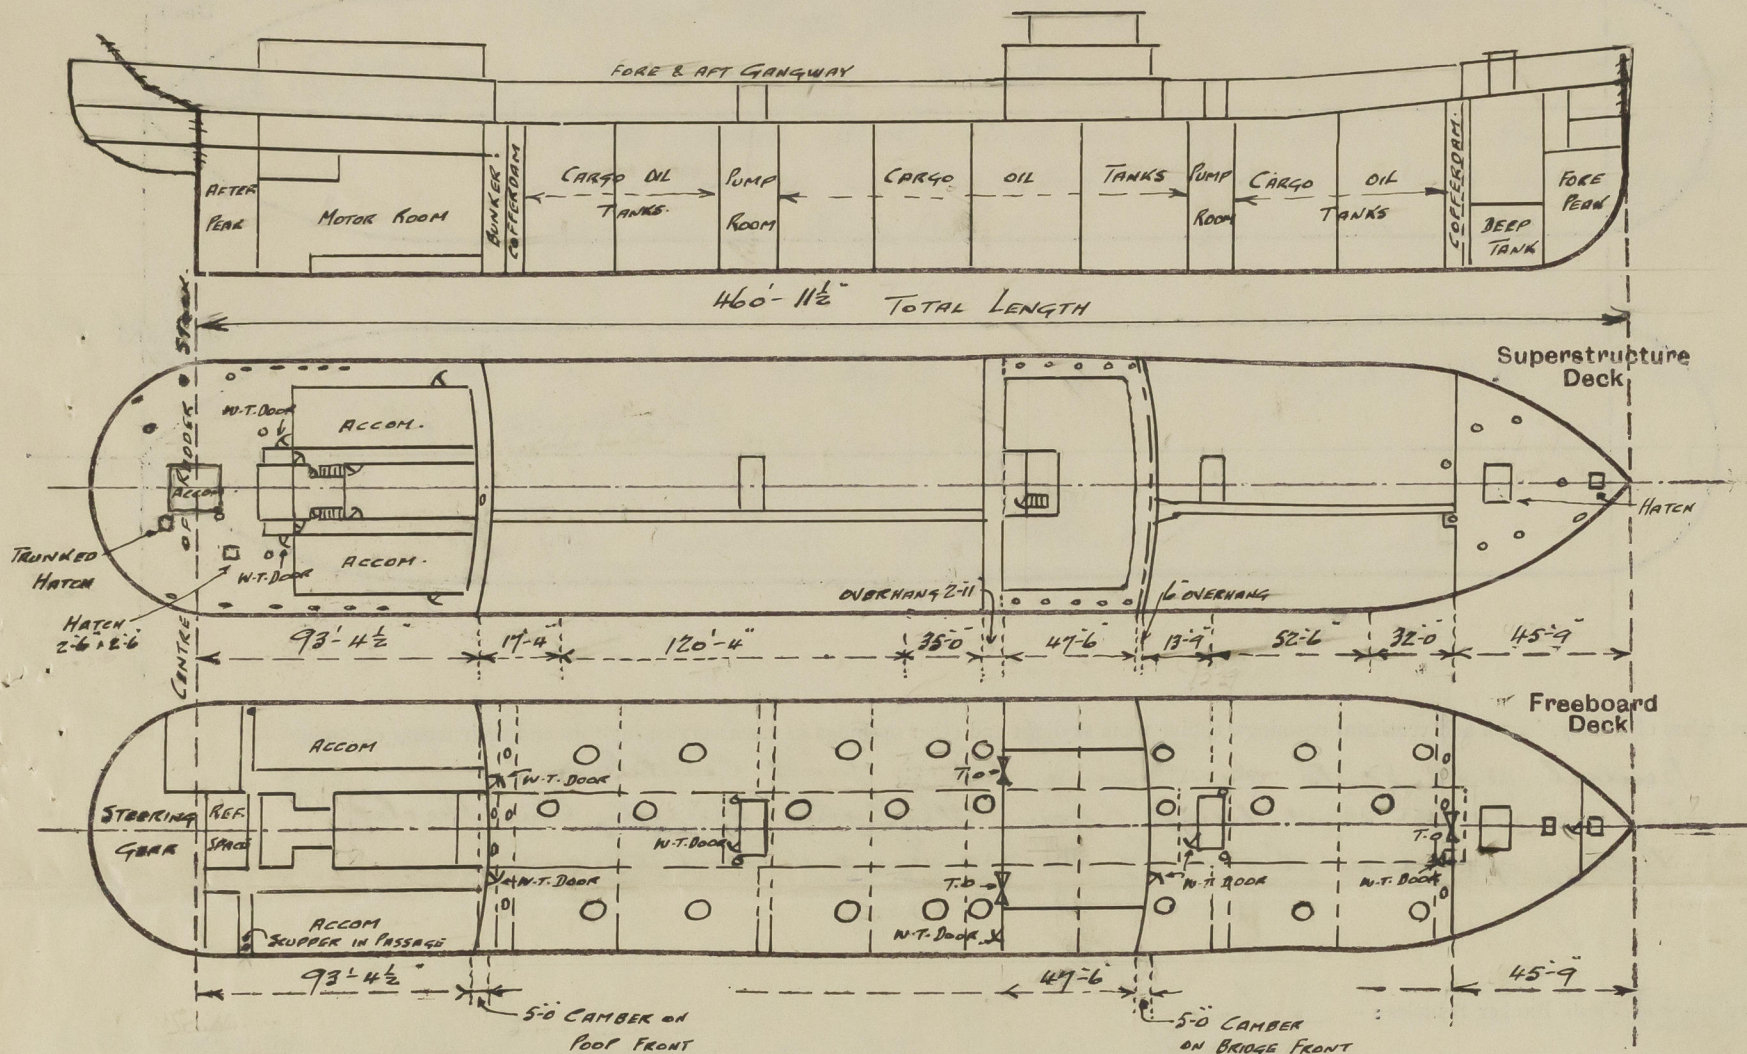 FORE & AFT GANGWAY
AFTER
PEAK
MOTOR ROOM
BUNKER.
COFFERDAM
CARGO OIL
TANKS.
PUMP
ROOM
CARGO OIL TANKS
PUMP
ROOM
CARGO OIL
TANKS
COFFERDAM.
DEEP
TANK
FORE
PEAK
460'-11½" TOTAL LENGTH
CENTRE OF RUDDER STOCK.
Superstructure
Deck
W.T. DOOR
ACCOM.
ACCOM
HATCH
TRUNKED
HATCH
W.T. DOOR
ACCOM.
HATCH
2'-6" x 2'-6"
OVERHANG 2'-11"
6" OVERHANG
93'-4½" 17'-4" 120'-4" 35'-0" 47'-6" 13'-9" 52'-6" 32'-0" 45'-9"
Freeboard
Deck
ACCOM
W.T. DOOR
T.O
STEERING
GEAR
REF.
SPACE
W.T. DOOR
T.O
W.T. DOOR
T.O
W.T. DOOR
W.T. DOOR
ACCOM
SCUPPER IN PASSAGE
W.T. DOOR
93'-4½" 47'-6" 45'-9"
5'-0" CAMBER ON
POOP FRONT
5'-0" CAMBER
ON BRIDGE FRONT